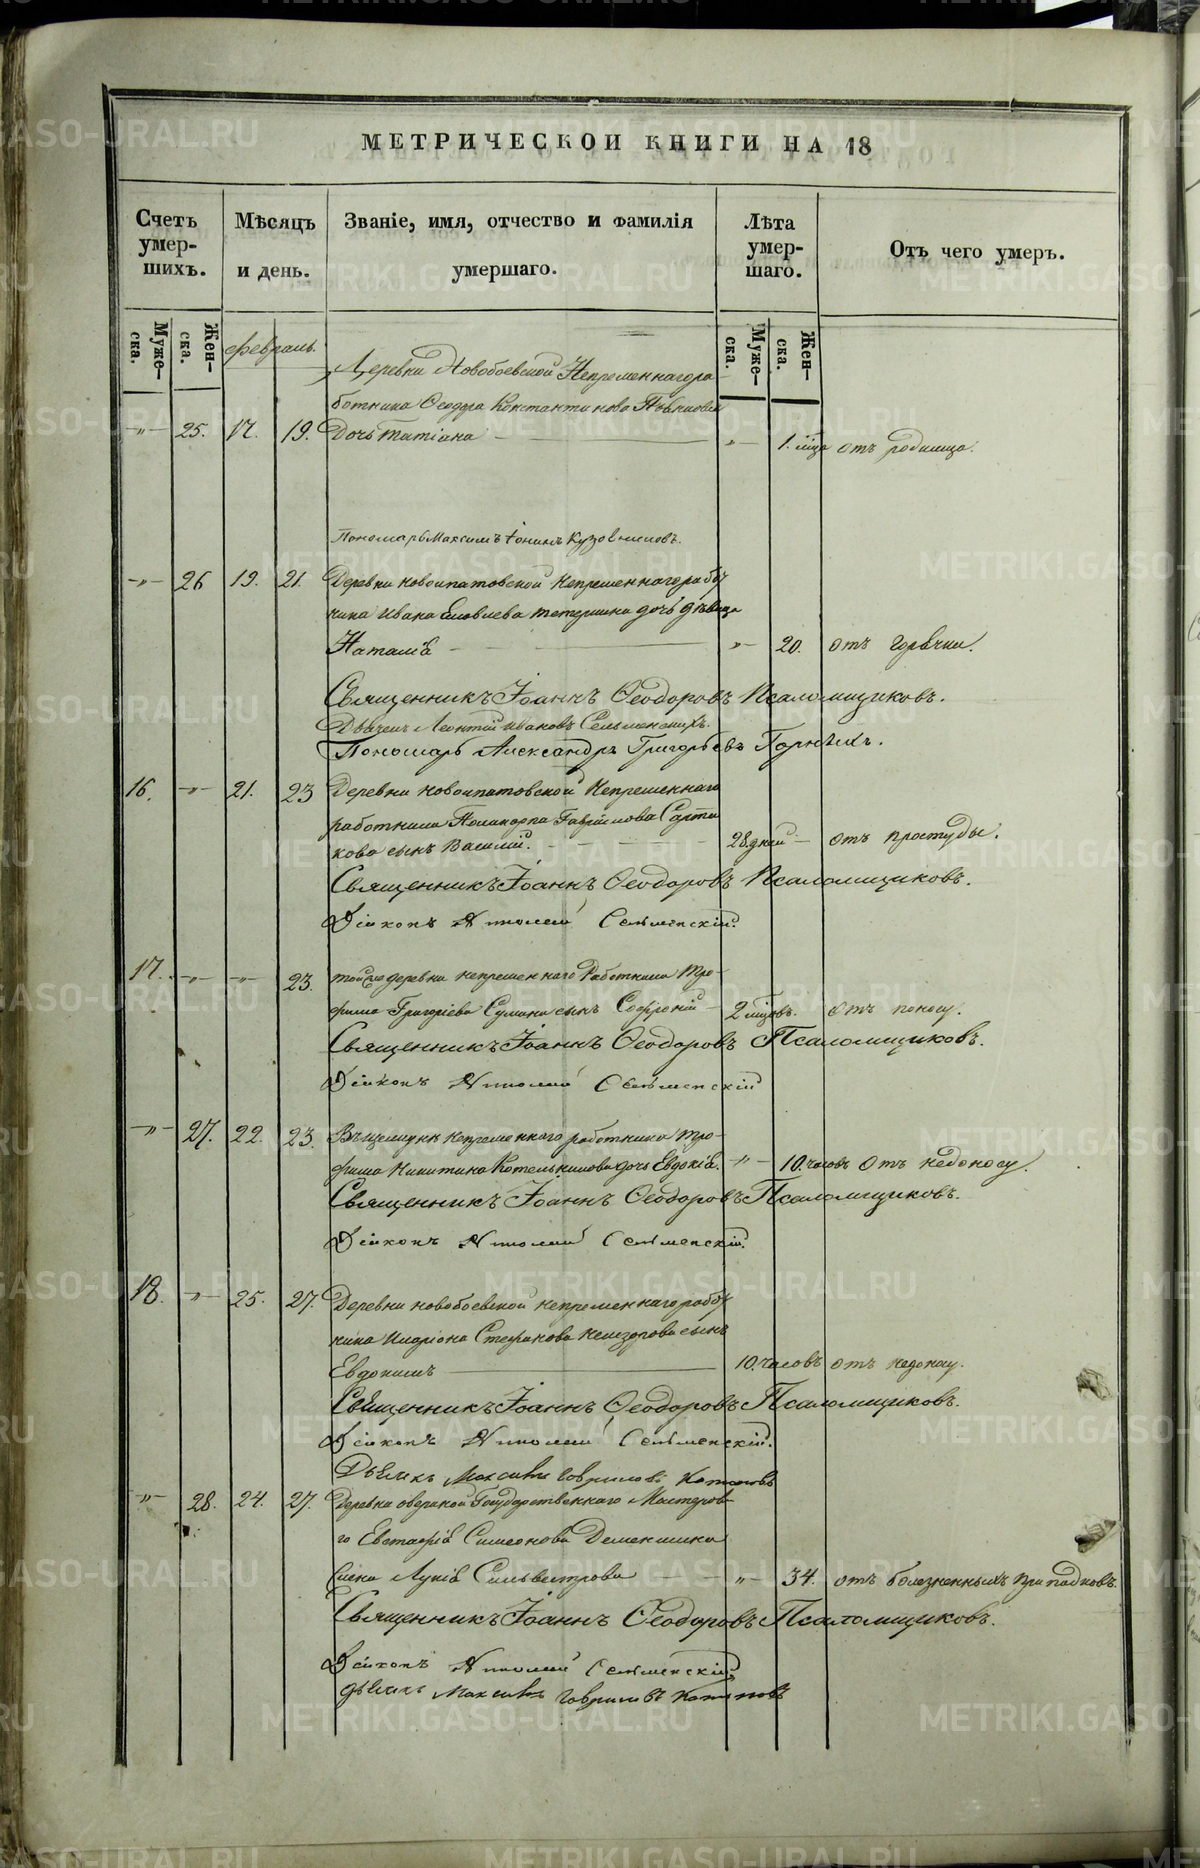 МЕТРИЧЕСКОЙ КНИГИ НА 18
Счетъ умер-шихъ.
Мѣсяцъ и день.
Званіе, имя, отчество и фамилія умершаго.
Лѣта умер-шаго.
Отъ чего умеръ.
Муже-ска.
Жен-ска.
Февраль.
Муже-ска.
Жен-ска.
Деревни Новобоевской Непременнагора-
ботника Ѳеодора Константинова
-„- 25. 17. 19. Дочь Татіана -„- 1. мца отъ родимца.
Пономарь Максимъ Іонинъ Кузовниковъ.
-„- 26 19. 21. Деревни Новоипатовской Непременнагоработ
ника Ивана Тетерина дочь дѣвица
Наталія -„- 20. отъ горячки.
Священникъ Іоаннъ Ѳеодоровъ Псаломщиковъ.
Дьячекъ Леонтій Ивановъ Сельменскихъ.
Пономарь Александръ Григорьевъ Горныхъ.
16. -„- 21. 23 Деревни Новоипатовской Непременнаго
работника Поликарпа Гаврилова Сарти
кова сынъ Василій. 28.дней - отъ простуды.
Священникъ Іоаннъ Ѳеодоровъ Псаломщиковъ.
Діаконъ Сельменскій.
17. -„- -„- 23. тойже деревни непременнаго Работника Тро-
фима Григоріева сынъ Софроній - 2 мцовъ. отъ поносу.
Священникъ Іоаннъ Ѳеодоровъ Псаломщиковъ.
Діаконъ Сельменскій
-„- 27. 22. 23. непременнаго работника Тро-
фима Никитина Котельникова дочь Евдокія. -„- 10.часовъ отъ недоносу.
Священникъ Іоаннъ Ѳеодоровъ Псаломщиковъ.
Діаконъ Сельменскій.
18. -„- 25. 27. Деревни Новобоевской непременнагоработ
ника Иларіона Стефанова сынъ
Евдокимъ 10.часовъ отъ недоносу.
Священникъ Іоаннъ Ѳеодоровъ Псаломщиковъ.
Діаконъ Сельменскій.
Дьячекъ Максимъ Гавриловъ
-„- 28. 24. 27. Деревни Государственнаго Мастеров-
го Евстафія Симеонова Деменшина
жена Лукія Сильвестрова -„- 34. отъ болезненныхъ припадковъ.
Священникъ Іоаннъ Ѳеодоровъ Псаломщиковъ.
Діаконъ Сельменскій
дьячекъ Максимъ Гавриловъ
METRIKI.GASO-URAL.RU